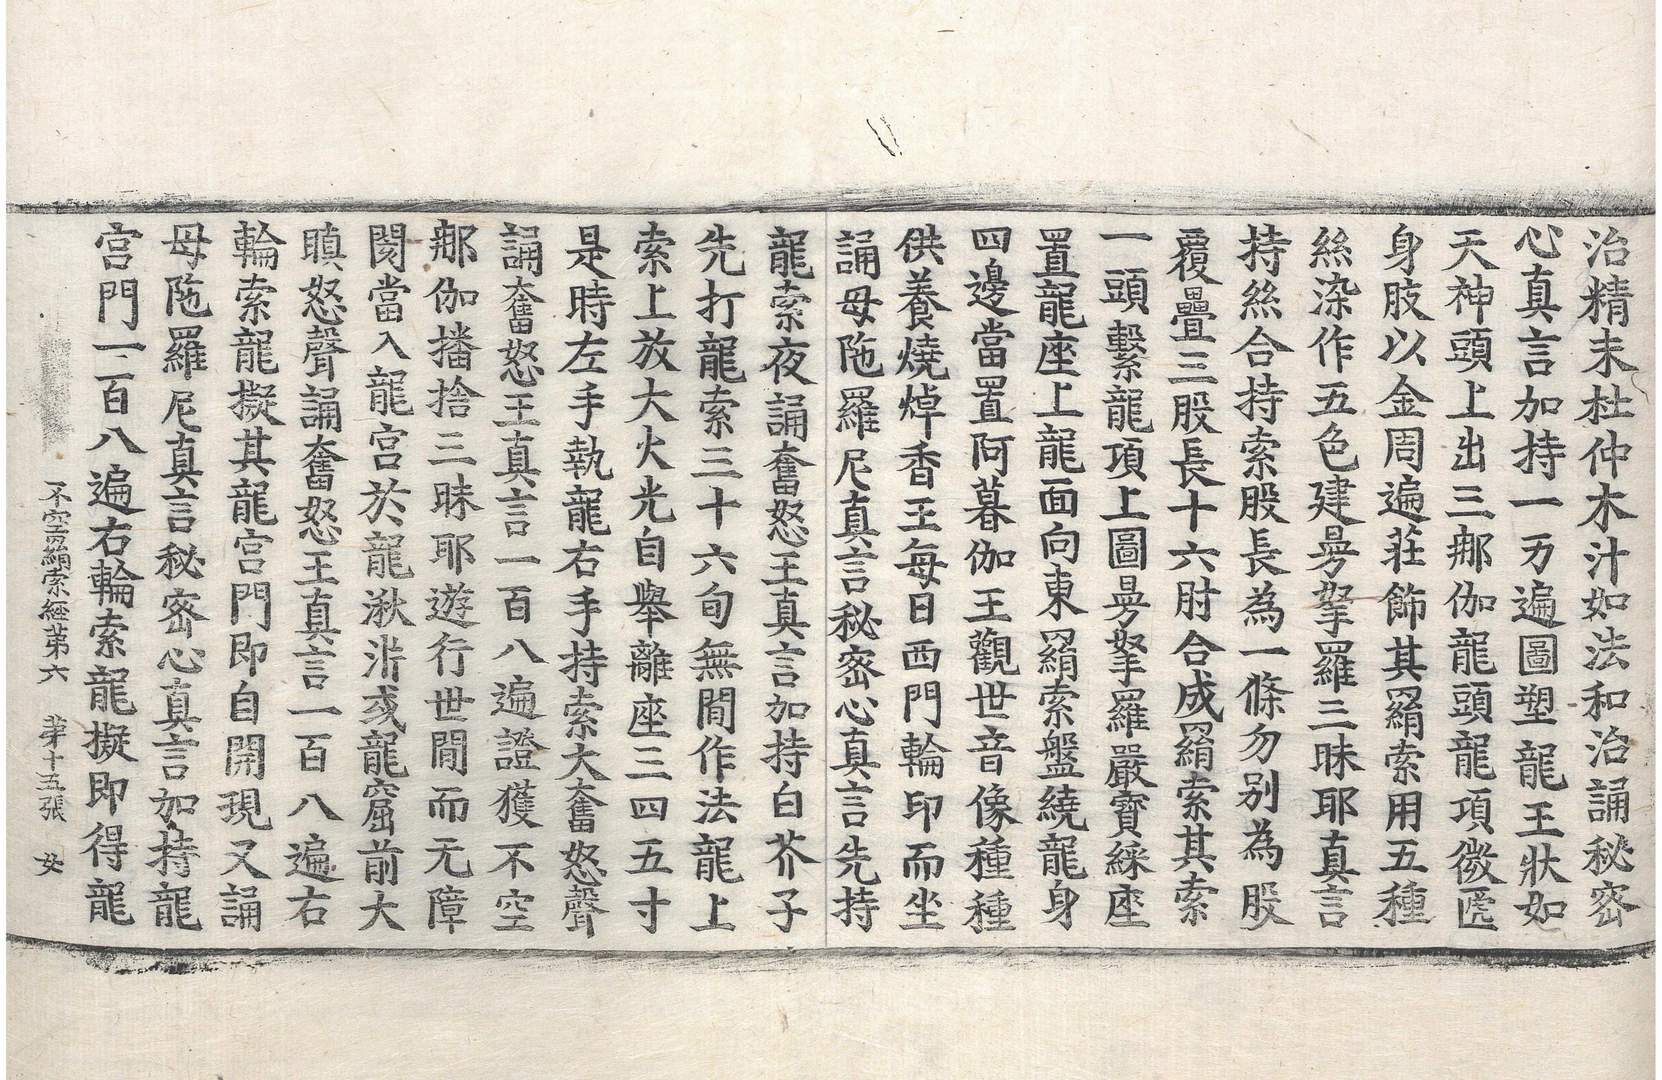 治精未杜仲木汁如法和治誦秘密
心真言加持一万遍圖塑龍王狀如
天神頭上出三郍伽龍頭龍項微匾
身肢以金周遍莊飾其羂索用五種
絲染作五色建㝵拏羅三昧耶真言
持絲合持索股長為一條勿別為股
覆疊三股長十六肘合成羂索其索
一頭繫龍項上圖㝵拏羅嚴寶綵座
置龍座上龍面向東羂索盤繞龍身
四邊當置阿暮伽王觀世音像種種
供養燒焯香王每日西門輪印而坐
誦母陁羅尼真言秘密心真言先持
龍索夜誦奮怒王真言加持白芥子
先打龍索三十六旬無間作法龍上
索上放大火光自舉離座三四五寸
是時左手執龍右手持索大奮怒聲
誦奮怒王真言一百八遍證獲不空
郍伽播捨三昧耶遊行世間而无障
閡當入龍宮於龍湫泮或龍窟前大
瞋怒聲誦奮怒王真言一百八遍右
輪索龍擬其龍宮門即自開現又誦
母陁羅尼真言秘密心真言加持龍
宮門一百八遍右輪索龍擬即得龍
不空羂索經第六 第十五張 女